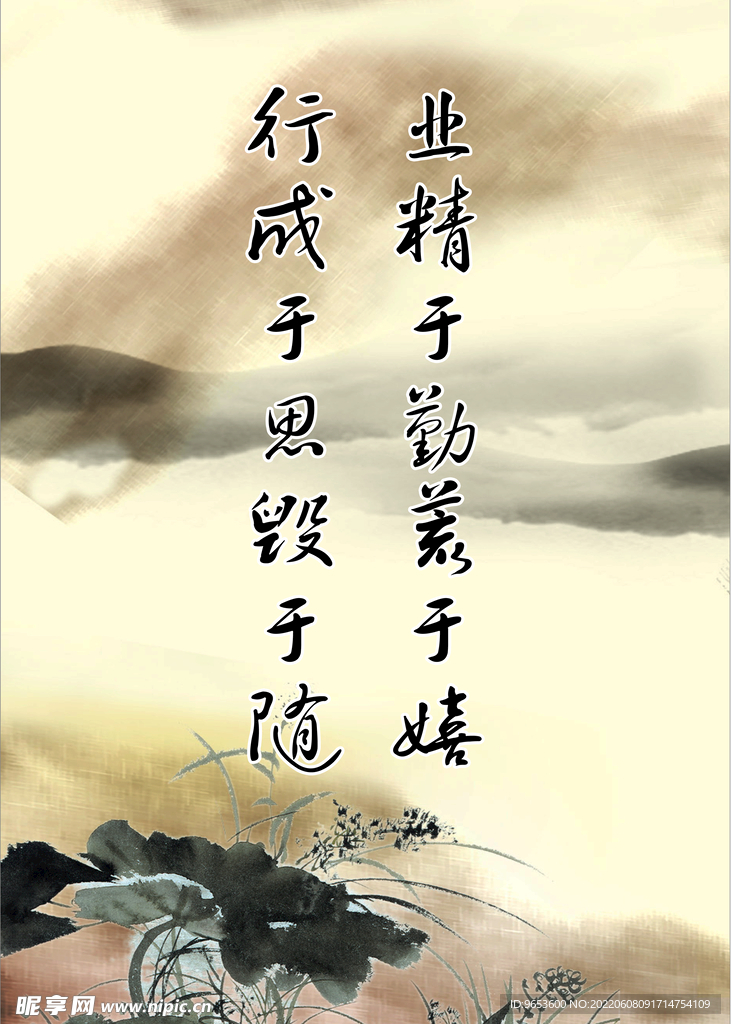 业精于勤荒于嬉
行成于思毁于随
昵享网 www.nipic.cn
ID:9653600 NO:20220608091714754109